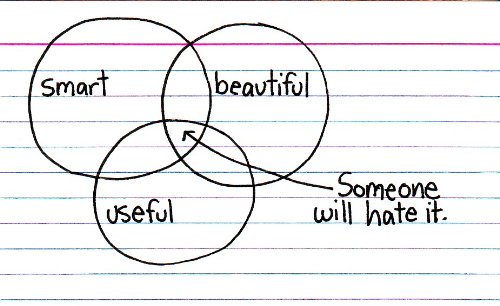 smart
beautiful
useful
Someone
will hate it.